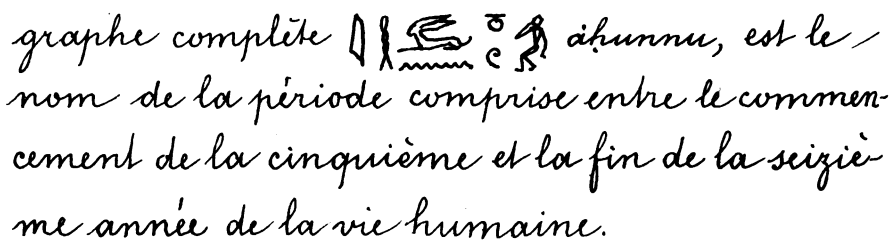 graphe complète 𓇋𓎛𓃹𓈖𓏌𓏲 ȧḥunnu, est le
nom de la période comprise entre le commen-
cement de la cinquième et la fin de la seiziè-
me année de la vie humaine.